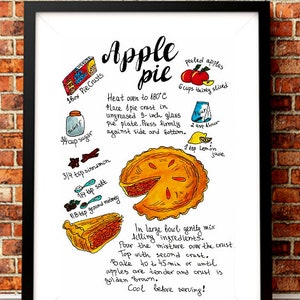 Apple
pie
peeled apples
6 cups thinly sliced
Pie Crusts
Heat oven to 180°C
Place 1 pie crust in
ungreased 9-inch glass
pie plate. Press firmly
against side and bottom.
3/4 cup sugar
2 tbsp flour
1 tbsp Lemon
juice
3/4 tsp cinnamon
1/4 tsp salt
1/8 tsp ground nutmeg
In large bowl gently mix
filling ingredients.
Pour the mixture over the crust
Top with second crust.
Bake to 45 min or until
apples are tender and crust is
golden brown.
Cool before serving!